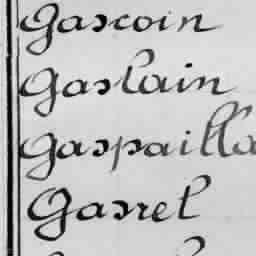 Gascoin
Gaslain
Gaspailla
Gasrel